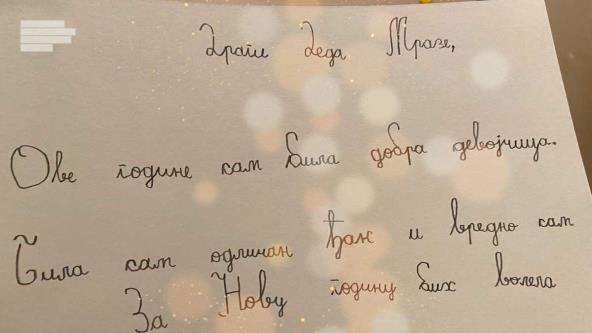 Драги Деда Мразе,
Ове године сам била добра девојчица.
Била сам одличан ђак и вредно сам
За Нову годину бих волела